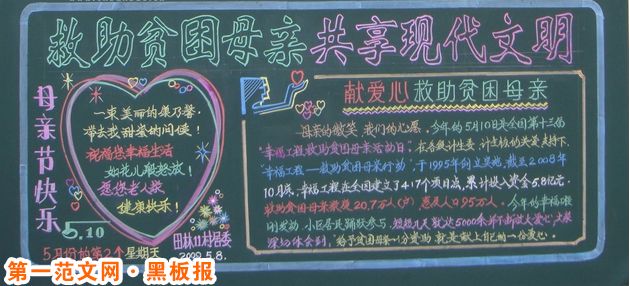 救助贫困母亲 共享现代文明
母亲节快乐
一束美丽的康乃馨
带去我甜蜜的问候！
祝福您幸福生活
如花儿般怒放！
愿您老人家
健康快乐！
5.10
5月份的第2个星期天
田林 村居委
2009.5.8.
献爱心救助贫困母亲
母亲的微笑 我们的心愿，今年的5月10日是全国第十三届
"幸福工程救助贫困母亲活动日"，在各级计生委、计生协的关爱支持下，
"幸福工程——救助贫困母亲行动"，于1995年创立实施，截至2008年
10月底，幸福工程在全国建立了417个项目点，累计投入资金5.8亿元，
救助贫困母亲家庭20.7万人(户) 惠及人口95万人。今年的幸福工程
刚发动，小区居民踊跃参与，短短几天就达5000余
深切体会到，"给予贫困母亲一份资助，就是献上自己的一份爱心。
第一范文网·黑板报